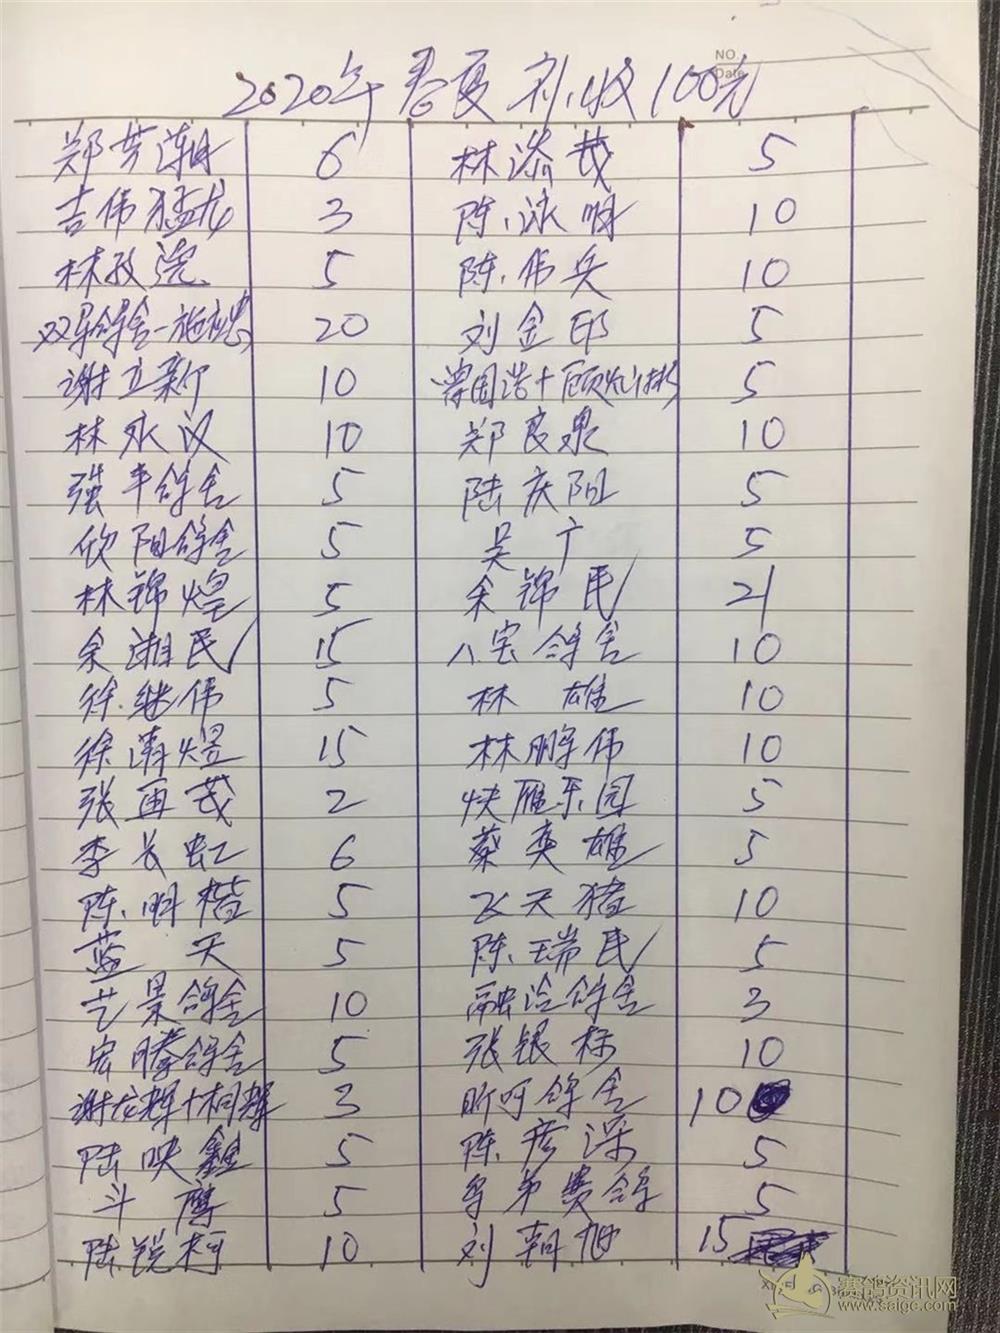 NO.
Date
2020年春夏 收100元
郑芳潮 6 林添茂 5
吉伟猛龙 3 陈泳明 10
林孜浣 5 陈伟兵 10
双号鸽舍-施 20 刘金印 5
谢立新 10 曾国浩+顾灿彬 5
林永汉 10 郑良泉 10
强丰鸽舍 5 陆庆阳 5
欣阳鸽舍 5 吴广 5
林锦煌 5 余锦民 21
余潮民 15 八宝鸽舍 10
徐继伟 5 林雄 10
徐清煜 15 林鹏伟 10
张再茂 2 快雁乐园 5
李长虹 6 蔡英雄 5
陈明楷 5 飞天猪 10
蓝天 5 陈瑞民 5
艺景鸽舍 10 融洽鸽舍 3
宏腾鸽舍 5 张银标 10
谢龙辉+桐辉 3 昕呵鸽舍 10
陆映鑫 5 陈彦深 5
斗鹰 5 兄弟赛鸽 5
陆锐柯 10 刘朝旭 15
赛鸽资讯网
www.saigc.com